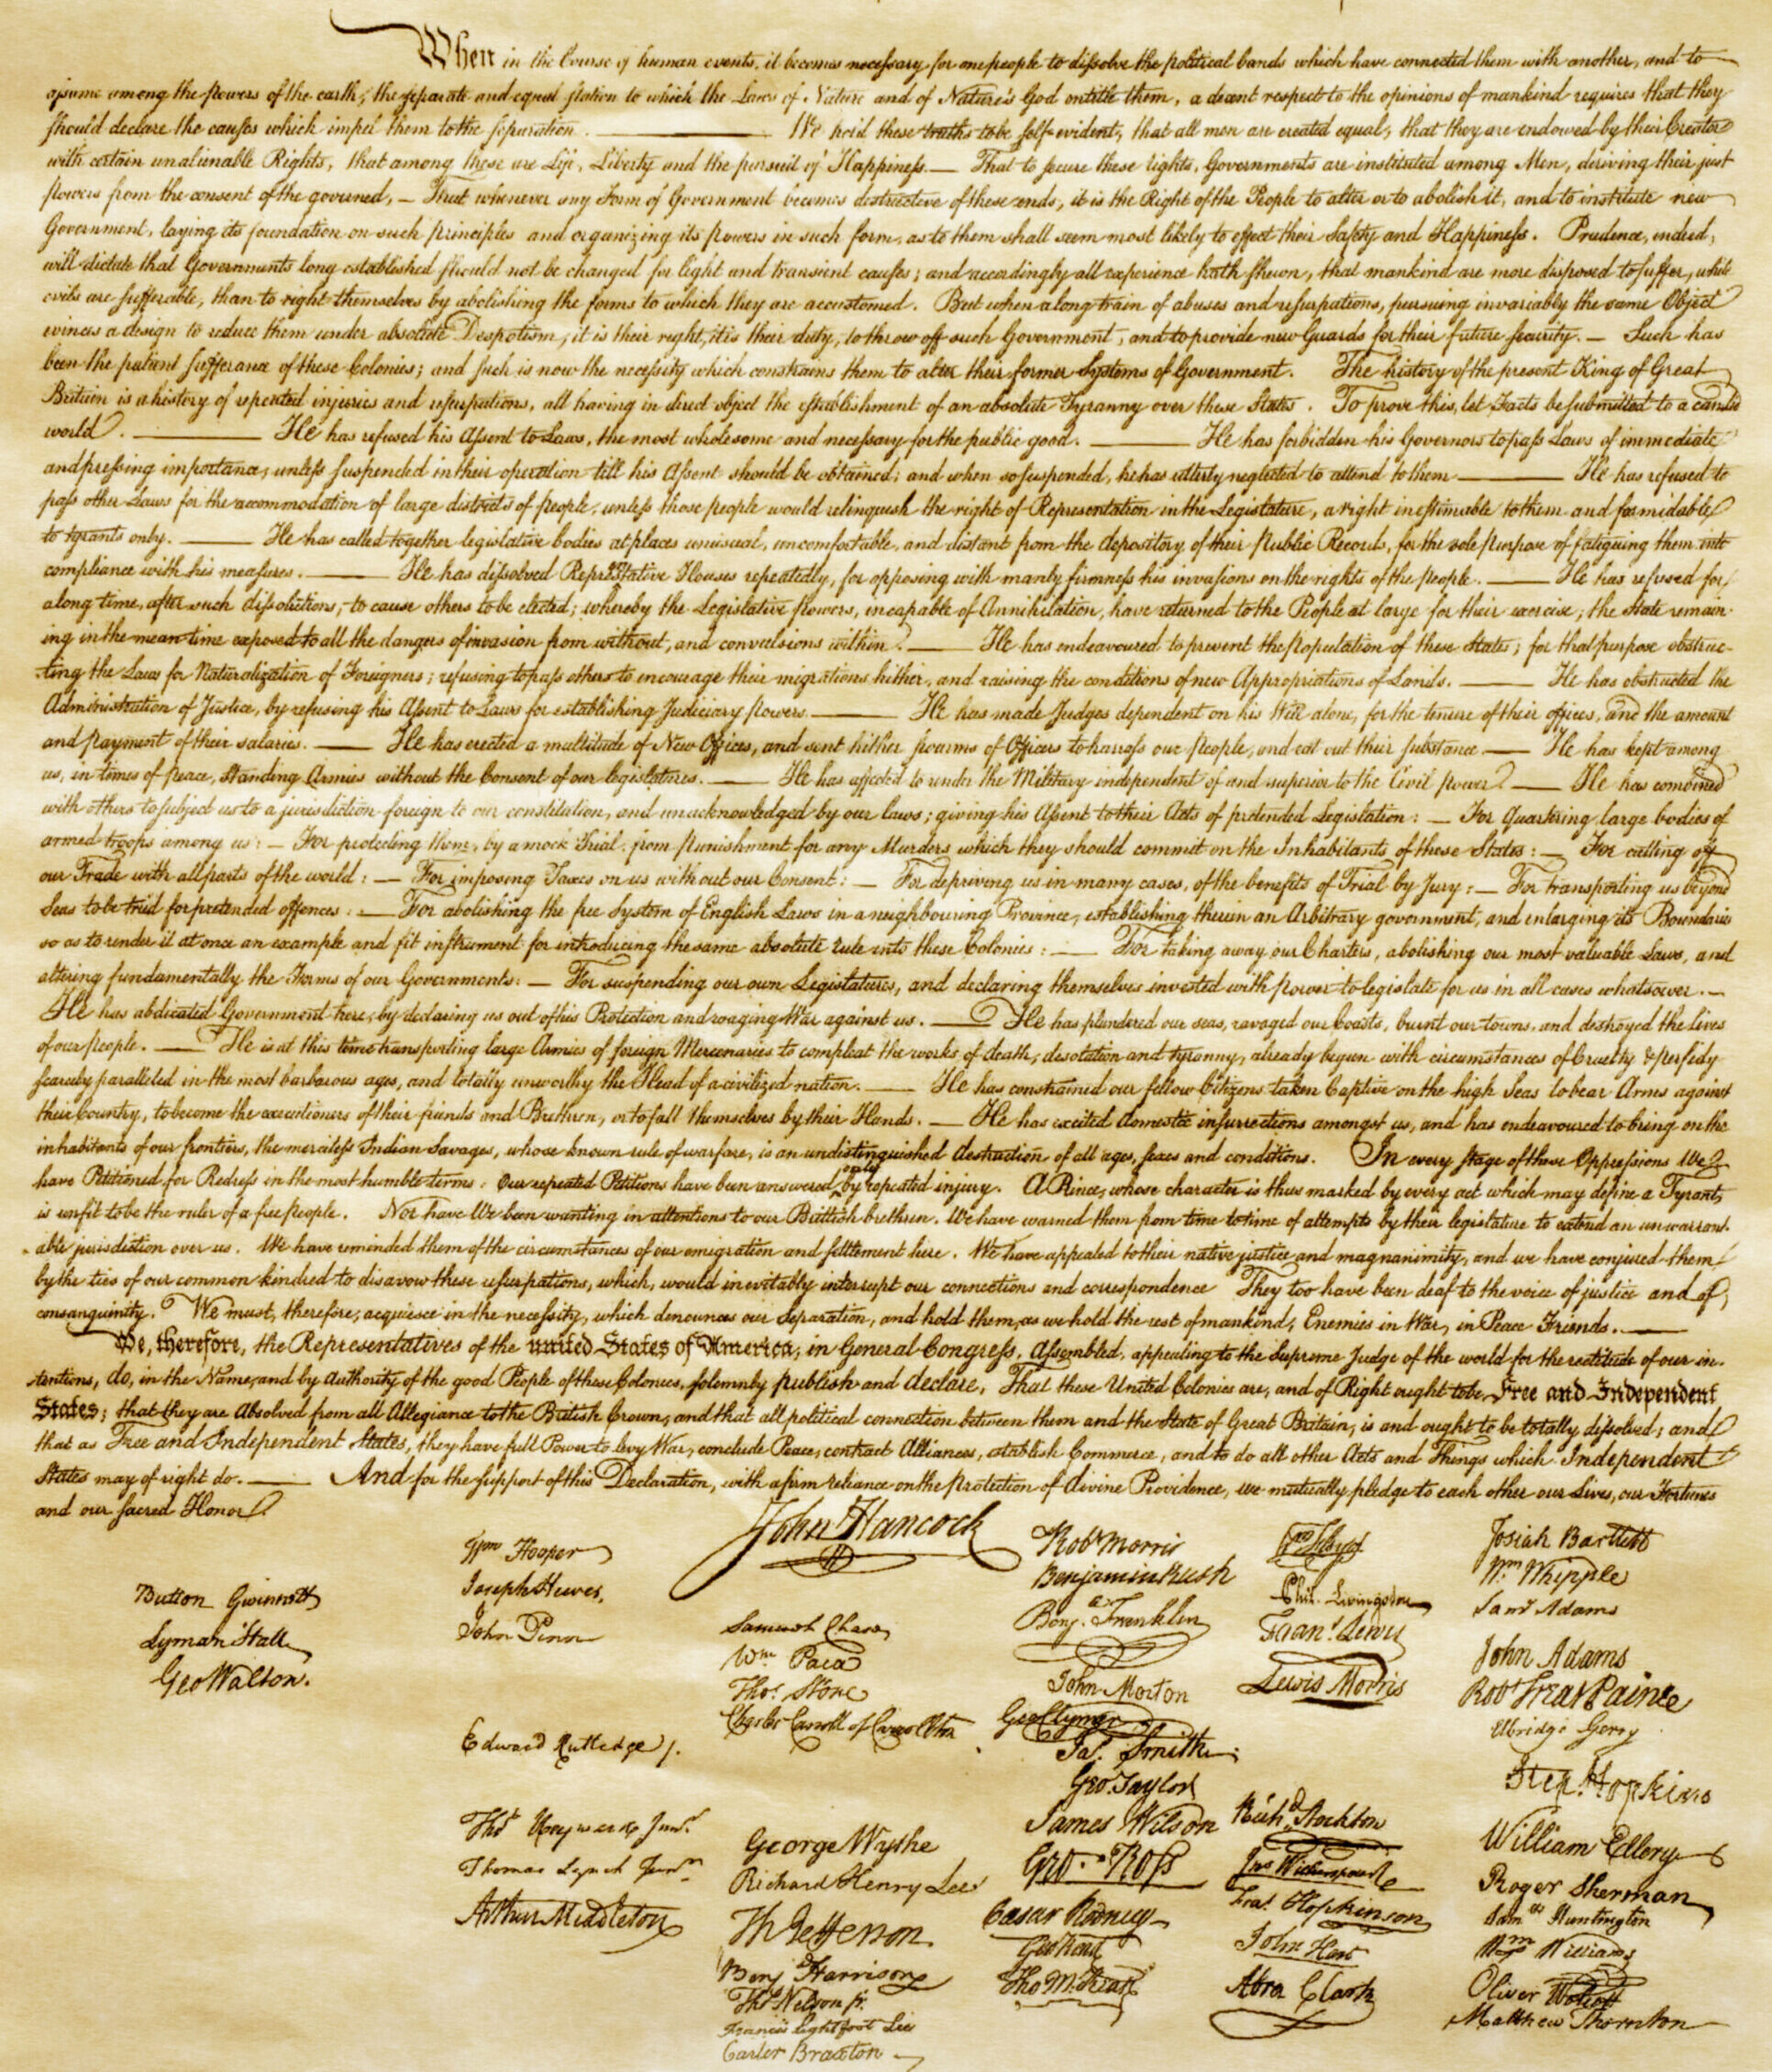 When in the Course of human events, it becomes necessary for one people to dissolve the political bands which have connected them with another, and to
assume among the powers of the earth, the separate and equal station to which the Laws of Nature and of Nature's God entitle them, a decent respect to the opinions of mankind requires that they
should declare the causes which impel them to the separation. ——— We hold these truths to be self-evident, that all men are created equal, that they are endowed by their Creator
with certain unalienable Rights, that among these are Life, Liberty and the pursuit of Happiness.— That to secure these rights, Governments are instituted among Men, deriving their just
powers from the consent of the governed, — That whenever any Form of Government becomes destructive of these ends, it is the Right of the People to alter or to abolish it, and to institute new
Government, laying its foundation on such principles and organizing its powers in such form, as to them shall seem most likely to effect their Safety and Happiness. Prudence, indeed,
will dictate that Governments long established should not be changed for light and transient causes; and accordingly all experience hath shewn, that mankind are more disposed to suffer, while
evils are sufferable, than to right themselves by abolishing the forms to which they are accustomed. But when a long train of abuses and usurpations, pursuing invariably the same Object
evinces a design to reduce them under absolute Despotism, it is their right, it is their duty, to throw off such Government, and to provide new Guards for their future security. — Such has
been the patient sufferance of these Colonies; and such is now the necessity which constrains them to alter their former Systems of Government. The history of the present King of Great
Britain is a history of repeated injuries and usurpations, all having in direct object the establishment of an absolute Tyranny over these States. To prove this, let Facts be submitted to a candid
world. ——— He has refused his Assent to Laws, the most wholesome and necessary for the public good. ——— He has forbidden his Governors to pass Laws of immediate
and pressing importance, unless suspended in their operation till his Assent should be obtained; and when so suspended, he has utterly neglected to attend to them ——— He has refused to
pass other Laws for the accommodation of large districts of people, unless those people would relinquish the right of Representation in the Legislature, a right inestimable to them and formidable
to tyrants only. ——— He has called together legislative bodies at places unusual, uncomfortable, and distant from the depository of their Public Records, for the sole purpose of fatiguing them into
compliance with his measures. ——— He has dissolved Representative Houses repeatedly, for opposing with manly firmness his invasions on the rights of the people. ——— He has refused for
a long time, after such dissolutions, to cause others to be elected; whereby the Legislative powers, incapable of Annihilation, have returned to the People at large for their exercise; the State remain-
ing in the mean time exposed to all the dangers of invasion from without, and convulsions within. ——— He has endeavoured to prevent the population of these States; for that purpose obstruc-
ting the Laws for Naturalization of Foreigners; refusing to pass others to encourage their migrations hither, and raising the conditions of new Appropriations of Lands. ——— He has obstructed the
Administration of Justice, by refusing his Assent to Laws for establishing Judiciary powers. ——— He has made Judges dependent on his Will alone, for the tenure of their offices, and the amount
and payment of their salaries. ——— He has erected a multitude of New Offices, and sent hither swarms of Officers to harrass our people, and eat out their substance. — He has kept among
us, in times of peace, Standing Armies without the Consent of our legislatures. ——— He has affected to render the Military independent of and superior to the Civil power. — He has combined
with others to subject us to a jurisdiction foreign to our constitution, and unacknowledged by our laws; giving his Assent to their Acts of pretended Legislation: — For Quartering large bodies of
armed troops among us: — For protecting them, by a mock Trial, from punishment for any Murders which they should commit on the Inhabitants of these States: — For cutting off
our Trade with all parts of the world: — For imposing Taxes on us without our Consent: — For depriving us in many cases, of the benefits of Trial by Jury: — For transporting us beyond
Seas to be tried for pretended offences: — For abolishing the free System of English Laws in a neighbouring Province, establishing therein an Arbitrary government, and enlarging its Boundaries
so as to render it at once an example and fit instrument for introducing the same absolute rule into these Colonies: — For taking away our Charters, abolishing our most valuable Laws, and
altering fundamentally the Forms of our Governments: — For suspending our own Legislatures, and declaring themselves invested with power to legislate for us in all cases whatsoever. —
He has abdicated Government here, by declaring us out of his Protection and waging War against us. — He has plundered our seas, ravaged our Coasts, burnt our towns, and destroyed the lives
of our people. — He is at this time transporting large Armies of foreign Mercenaries to compleat the works of death, desolation and tyranny, already begun with circumstances of Cruelty & perfidy
scarcely paralleled in the most barbarous ages, and totally unworthy the Head of a civilized nation. — He has constrained our fellow Citizens taken Captive on the high Seas to bear Arms against
their Country, to become the executioners of their friends and Brethren, or to fall themselves by their Hands. — He has excited domestic insurrections amongst us, and has endeavoured to bring on the
inhabitants of our frontiers, the merciless Indian Savages, whose known rule of warfare, is an undistinguished destruction of all ages, sexes and conditions. In every stage of these Oppressions We
have Petitioned for Redress in the most humble terms: Our repeated Petitions have been answered only by repeated injury. A Prince, whose character is thus marked by every act which may define a Tyrant,
is unfit to be the ruler of a free people. Nor have We been wanting in attentions to our Brittish brethren. We have warned them from time to time of attempts by their legislature to extend an unwarrant-
able jurisdiction over us. We have reminded them of the circumstances of our emigration and settlement here. We have appealed to their native justice and magnanimity, and we have conjured them
by the ties of our common kindred to disavow these usurpations, which, would inevitably interrupt our connections and correspondence They too have been deaf to the voice of justice and of
consanguinity. We must, therefore, acquiesce in the necessity, which denounces our Separation, and hold them, as we hold the rest of mankind, Enemies in War, in Peace Friends. ———
We, therefore, the Representatives of the united States of America, in General Congress, Assembled, appealing to the Supreme Judge of the world for the rectitude of our in-
tentions, do, in the Name, and by Authority of the good People of these Colonies, solemnly publish and declare, That these United Colonies are, and of Right ought to be Free and Independent
States; that they are Absolved from all Allegiance to the British Crown, and that all political connection between them and the State of Great Britain, is and ought to be totally dissolved; and
that as Free and Independent States, they have full Power to levy War, conclude Peace, contract Alliances, establish Commerce, and to do all other Acts and Things which Independent
States may of right do. ——— And for the support of this Declaration, with a firm reliance on the protection of divine Providence, we mutually pledge to each other our Lives, our Fortunes
and our sacred Honor.
Button Gwinnett
Lyman Hall
Geo Walton.
Wm Hooper
Joseph Hewes,
John Penn
Edward Rutledge /.
Thos Heyward Junr.
Thomas Lynch Junr.
Arthur Middleton
John Hancock
Samuel Chase
Wm Paca
Thos. Stone
Charles Carroll of Carrollton
George Wythe
Richard Henry Lee
Th Jefferson
Benj Harrison
Thos Nelson jr.
Francis Lightfoot Lee
Carter Braxton
Robt Morris
Benjamin Rush
Benj. Franklin
John Morton
Geo Clymer
Jas. Smith.
Geo. Taylor
James Wilson
Geo. Ross
Caesar Rodney
Geo Read
Tho M:Kean
Wm Floyd
Phil. Livingston
Frans. Lewis
Lewis Morris
Richd. Stockton
Jno Witherspoon
Fras. Hopkinson
John Hart
Abra Clark
Josiah Bartlett
Wm Whipple
Saml Adams
John Adams
Robt Treat Paine
Elbridge Gerry
Step. Hopkins
William Ellery
Roger Sherman
Saml Huntington
Wm Williams
Oliver Wolcott
Matthew Thornton